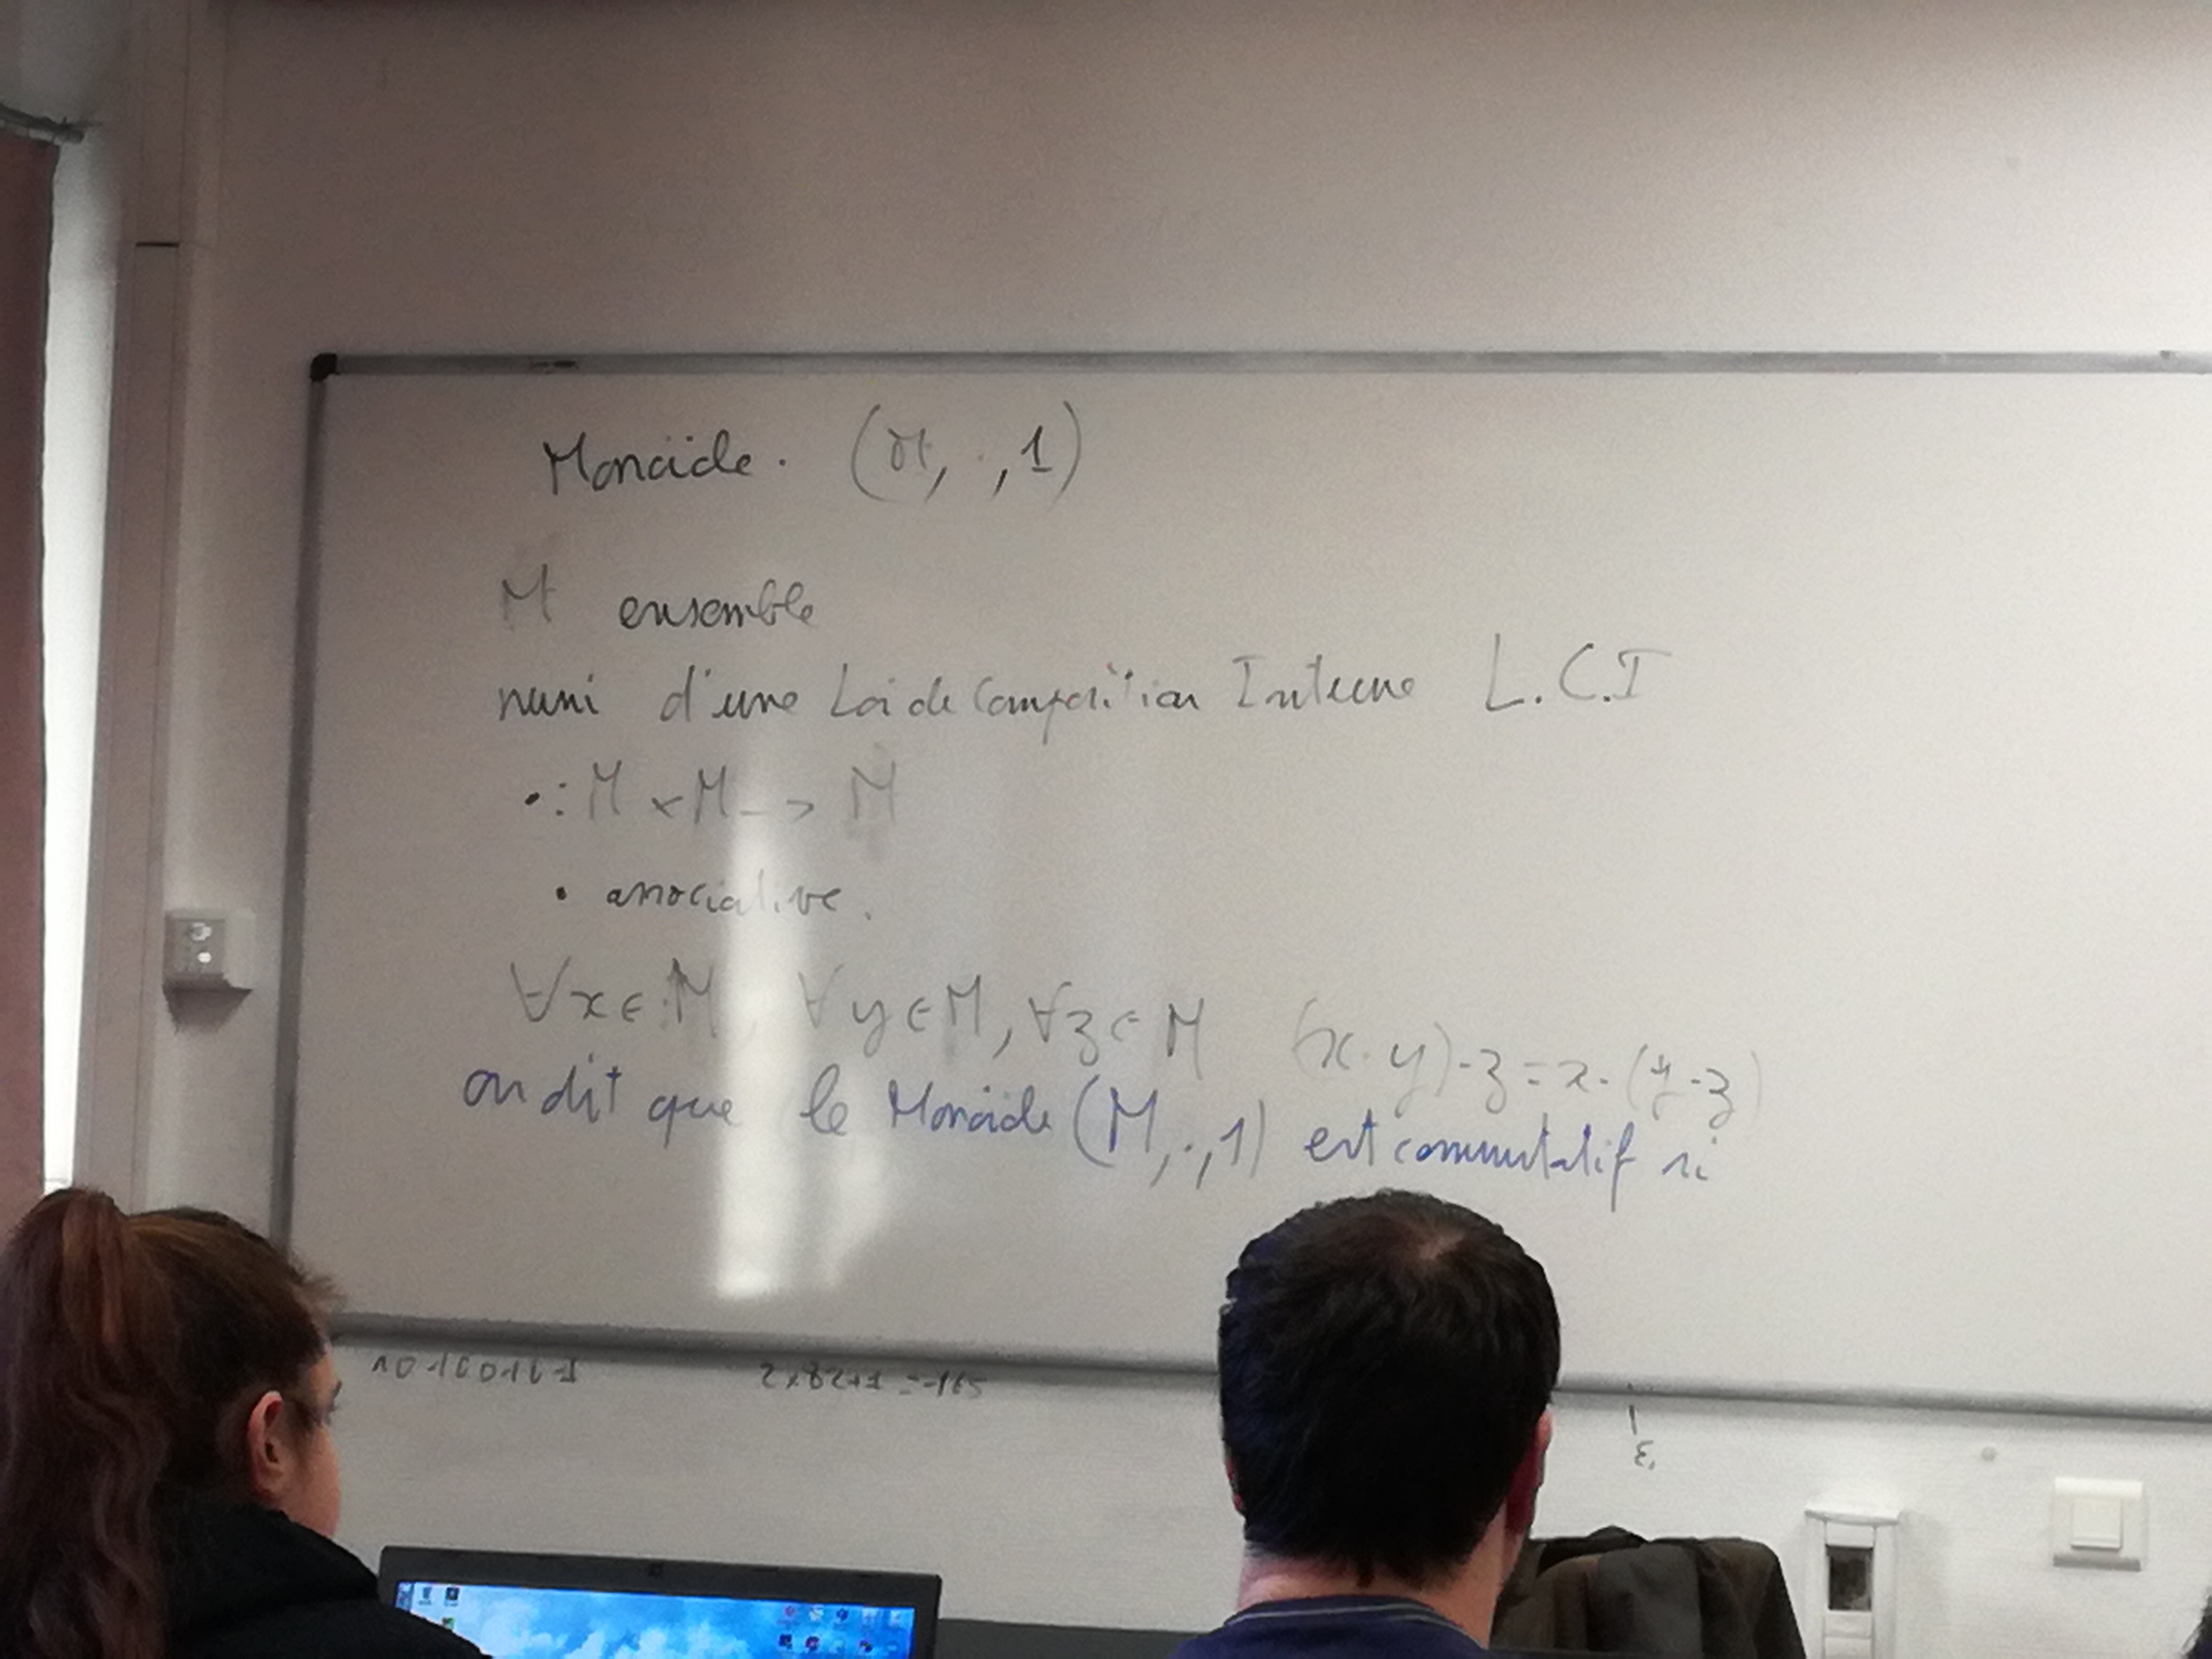 Monoïde. (M, ., 1)
M ensemble
muni d'une Loi de Composition Interne L.C.I
• : M × M -> M
• associative.
∀x ∈ M, ∀y ∈ M, ∀z ∈ M (x . y) . z = x . (y . z)
on dit que le Monoïde (M, ., 1) est commutatif si
2x82+1 = 165